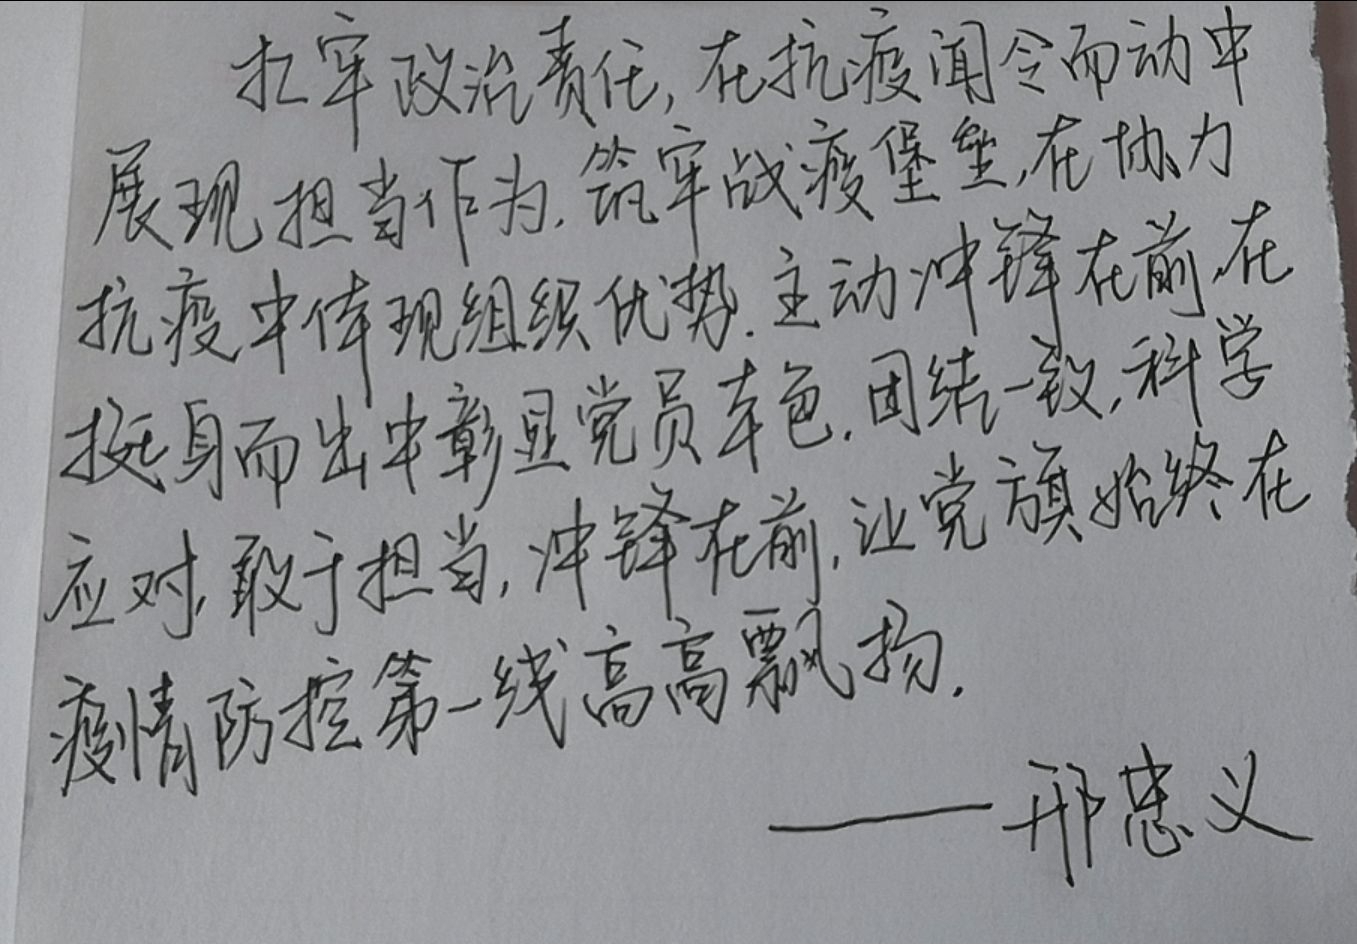 扛牢政治责任,在抗疫闻令而动中
展现担当作为.筑牢战疫堡垒,在协力
抗疫中体现组织优势.主动冲锋在前,在
挺身而出中彰显党员本色.团结一致,科学
应对,敢于担当,冲锋在前,让党旗始终在
疫情防控第一线高高飘扬.
——邢忠义